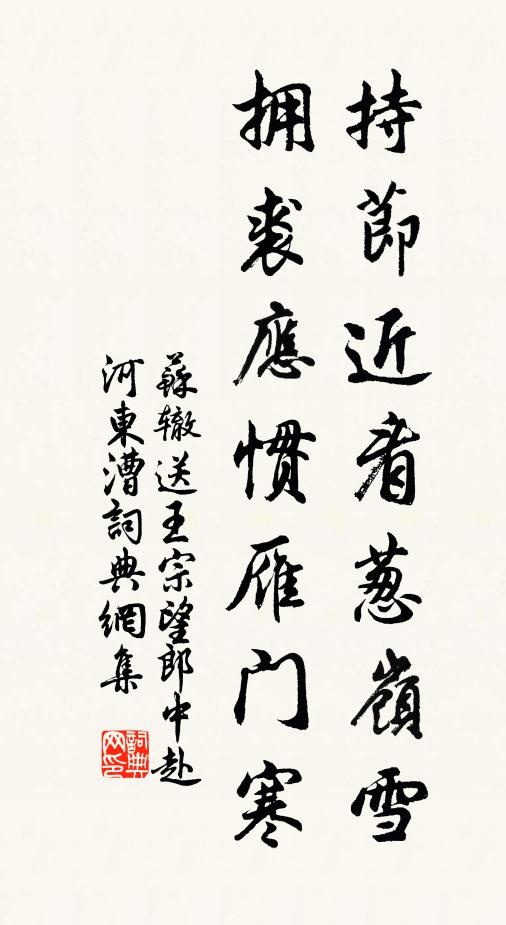 持節近看葱嶺雪
拥裘應惯雁门寒
蘇辙送王宗望郎中赴
河東漕詞典網集
詞典网印